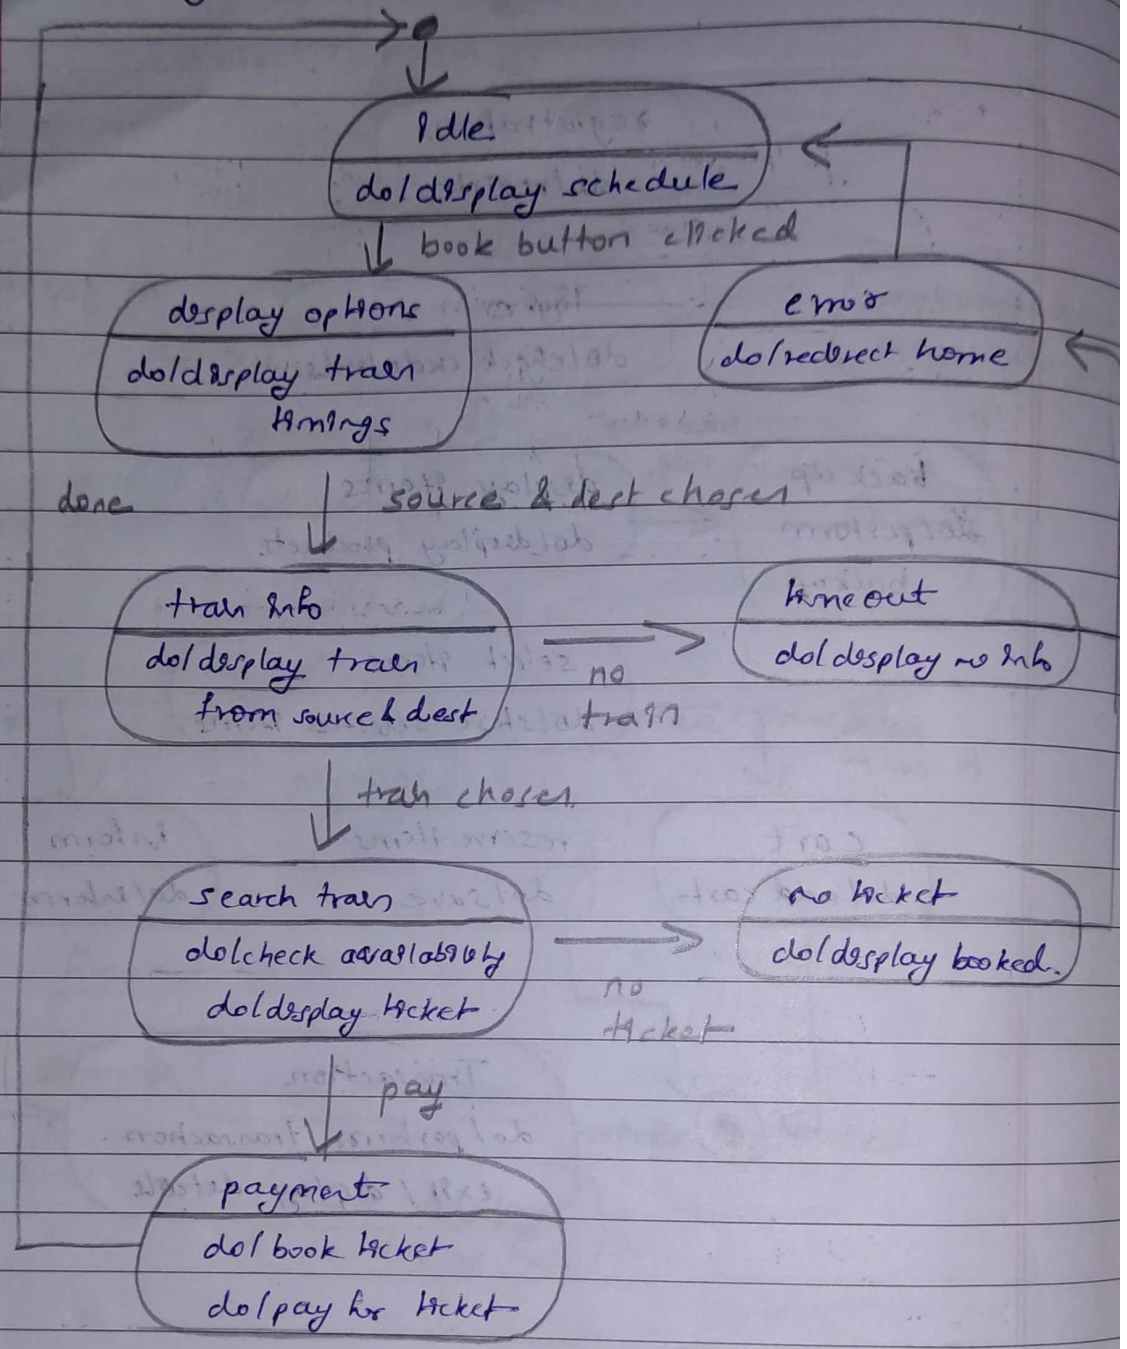 Idle
do/display schedule
book button clicked
display options
do/display train
timings
error
do/redirect home
done
source & dest chosen
train info
do/display train
from source & dest
no
train
timeout
do/display no info
train chosen
search train
do/check availability
do/display ticket
no
ticket
no ticket
do/display booked.
pay
payment
do/book ticket
do/pay for ticket